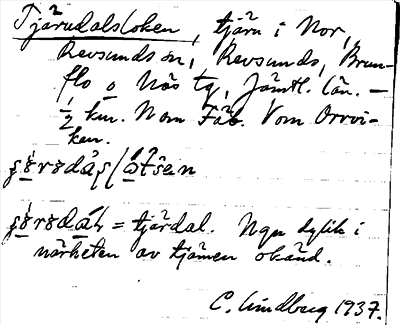 Tjärudalsloken, tjärn i Nor,
Revsunds sn, Revsunds, Brun-
flo o Näs tg, Jämtl. län. —
½ km. N om Fäb. V om Orrvi-
ken.
= tjärdal. Ngn dylik i
närheten av tjärnen okänd.
C. Lindberg 1937.